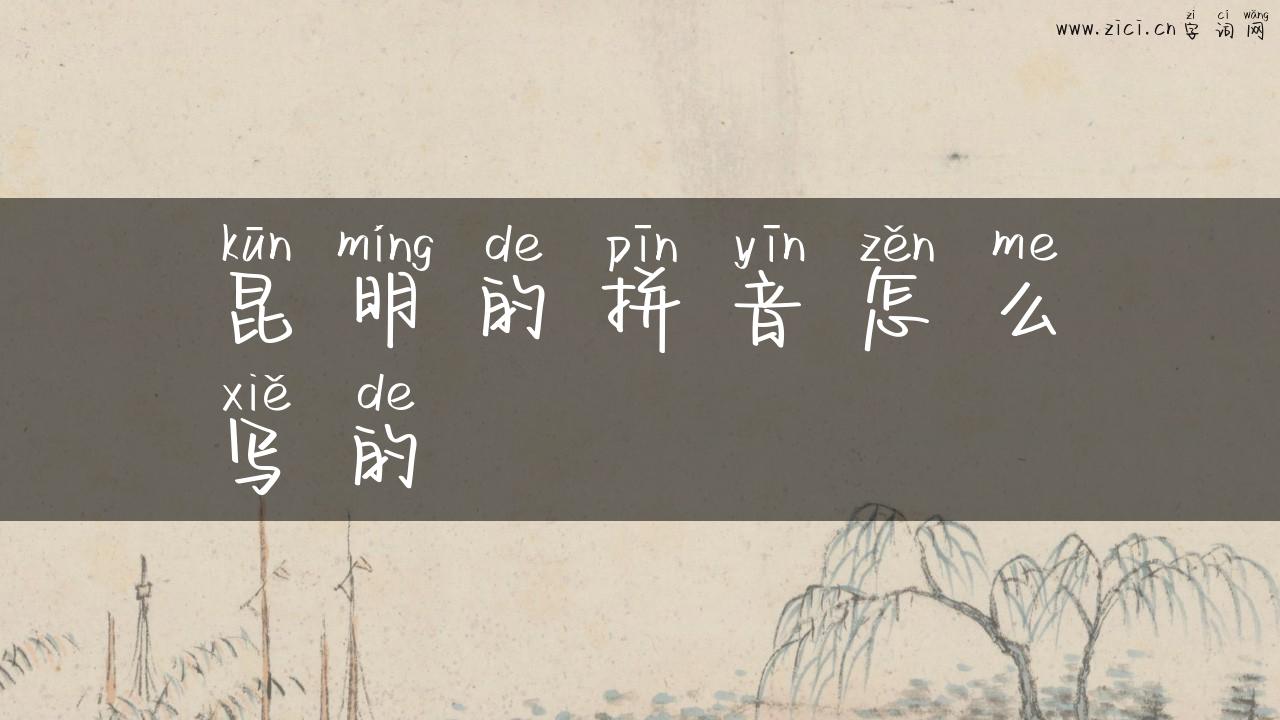 zì cí wǎng
www.zici.cn 字 词 网
kūn míng de pīn yīn zěn me
昆 明 的 拼 音 怎 么
xiě de
写 的